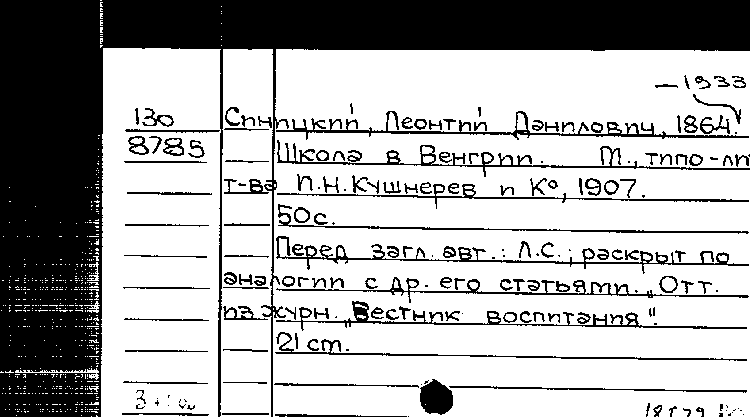 —1933
130 Синицкий, Леонтий Данилович, 1864.
8785 Школа в Венгрии. М., типо-ли
т-ва И.Н.Кушнерев и К°, 1907.
50с.
Перед загл. авт.: Л.С.; раскрыт по
аналогии с др. его статьями. „Отт.
из журн. „Вестник воспитания“.
21 cm.